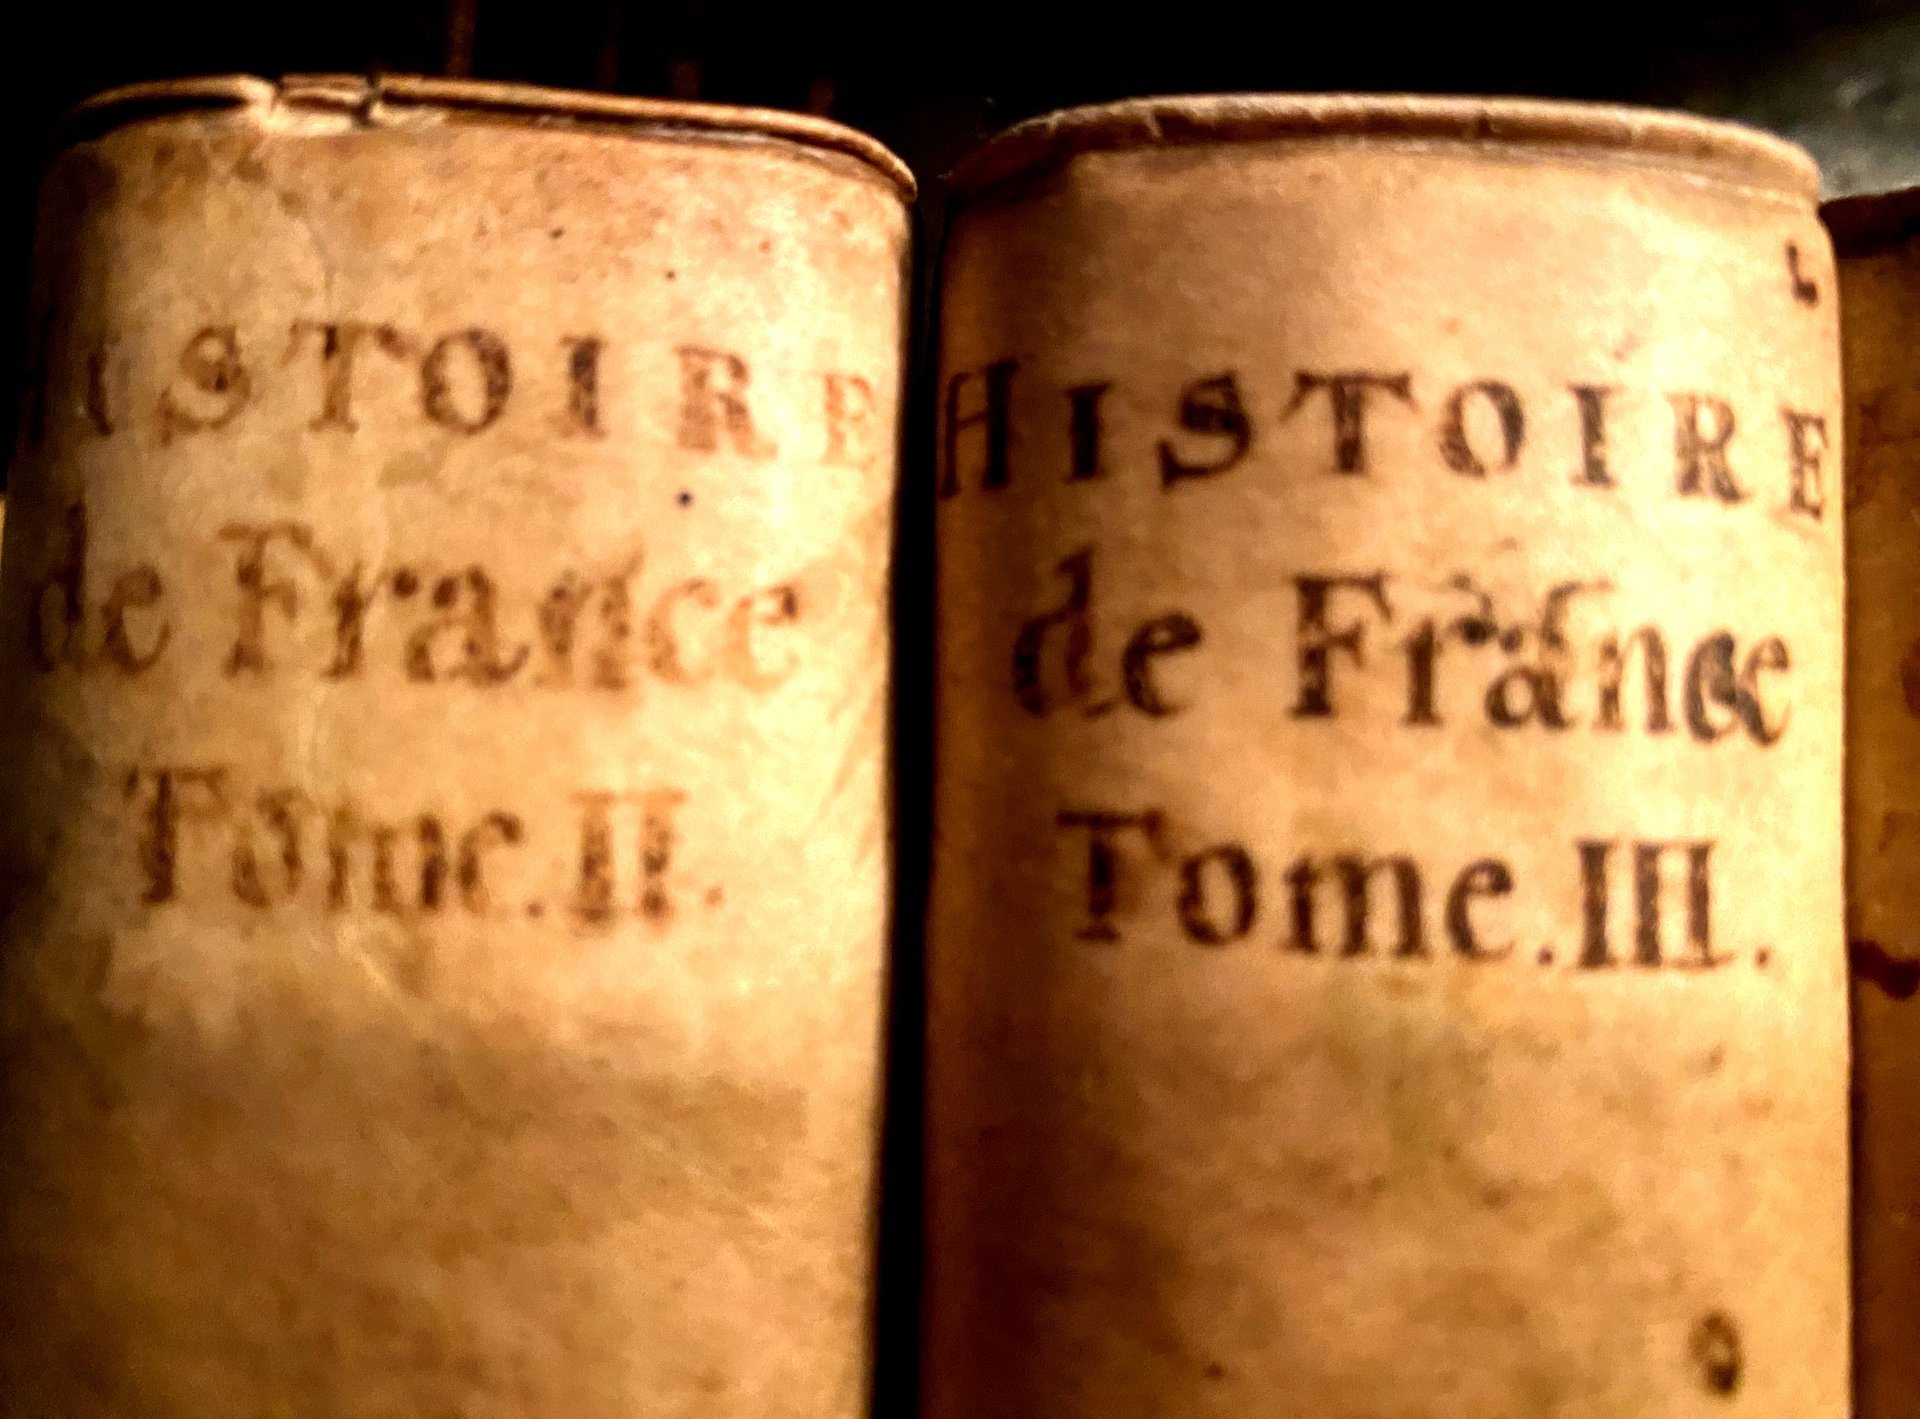 HISTOIRE
de France
Tome.II.
HISTOIRE
de France
Tome.III.